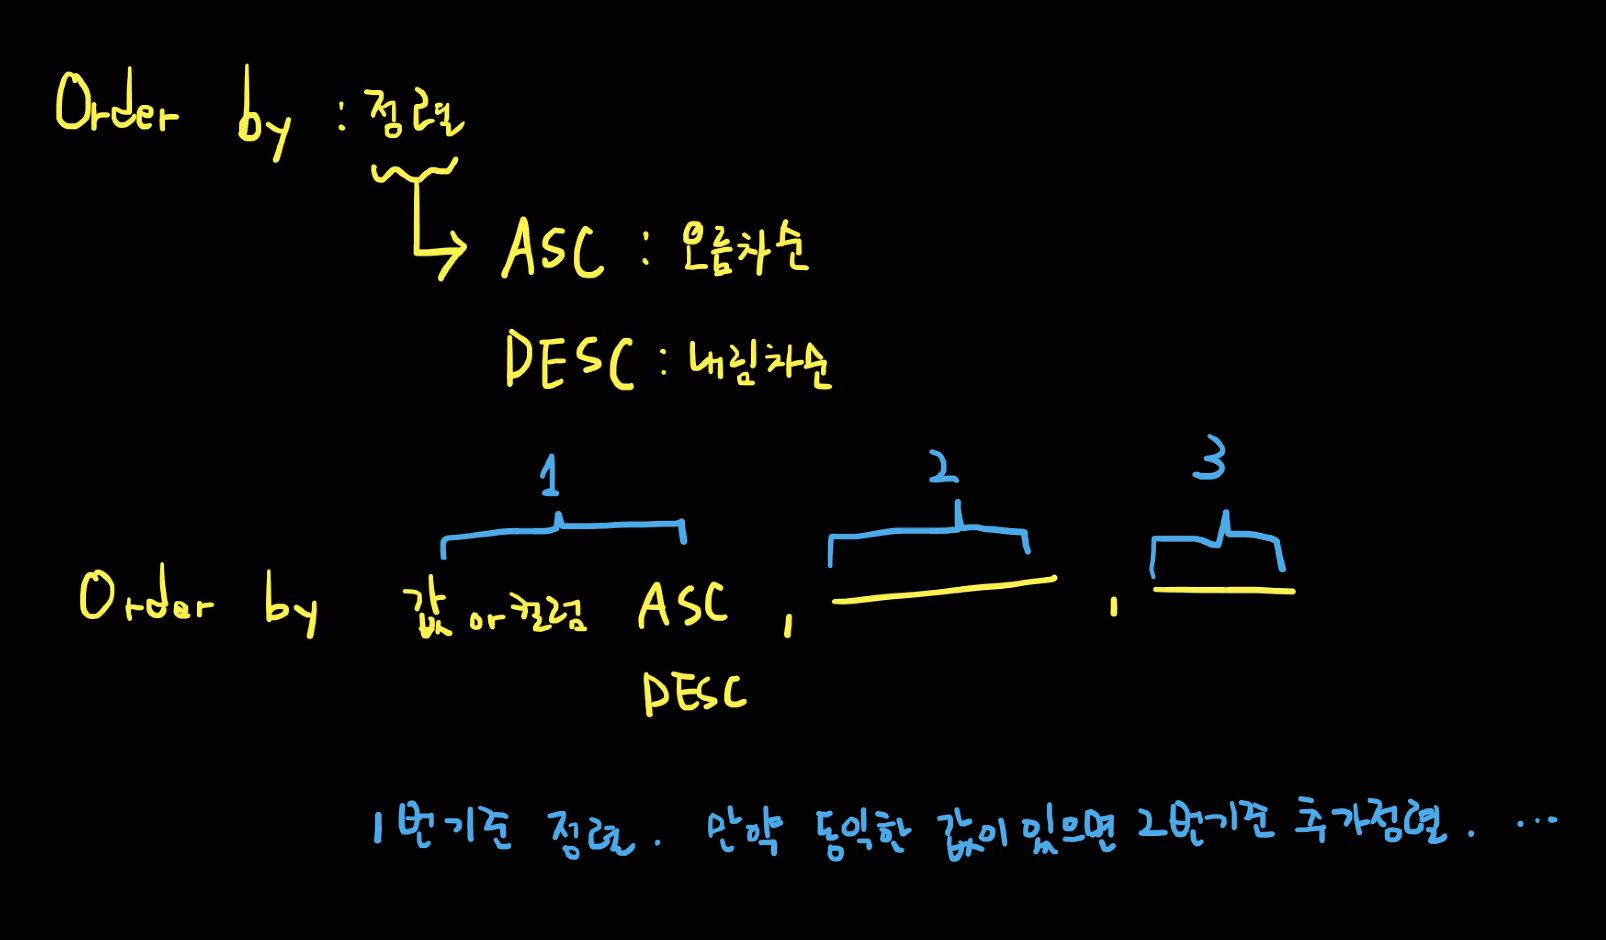 Order by : 정렬
ASC : 오름차순
DESC : 내림차순
1 2 3
Order by 값 or 컬럼 ASC , ,
DESC
1번기준 정렬. 만약 동일한 값이 있으면 2번기준 추가정렬. ...